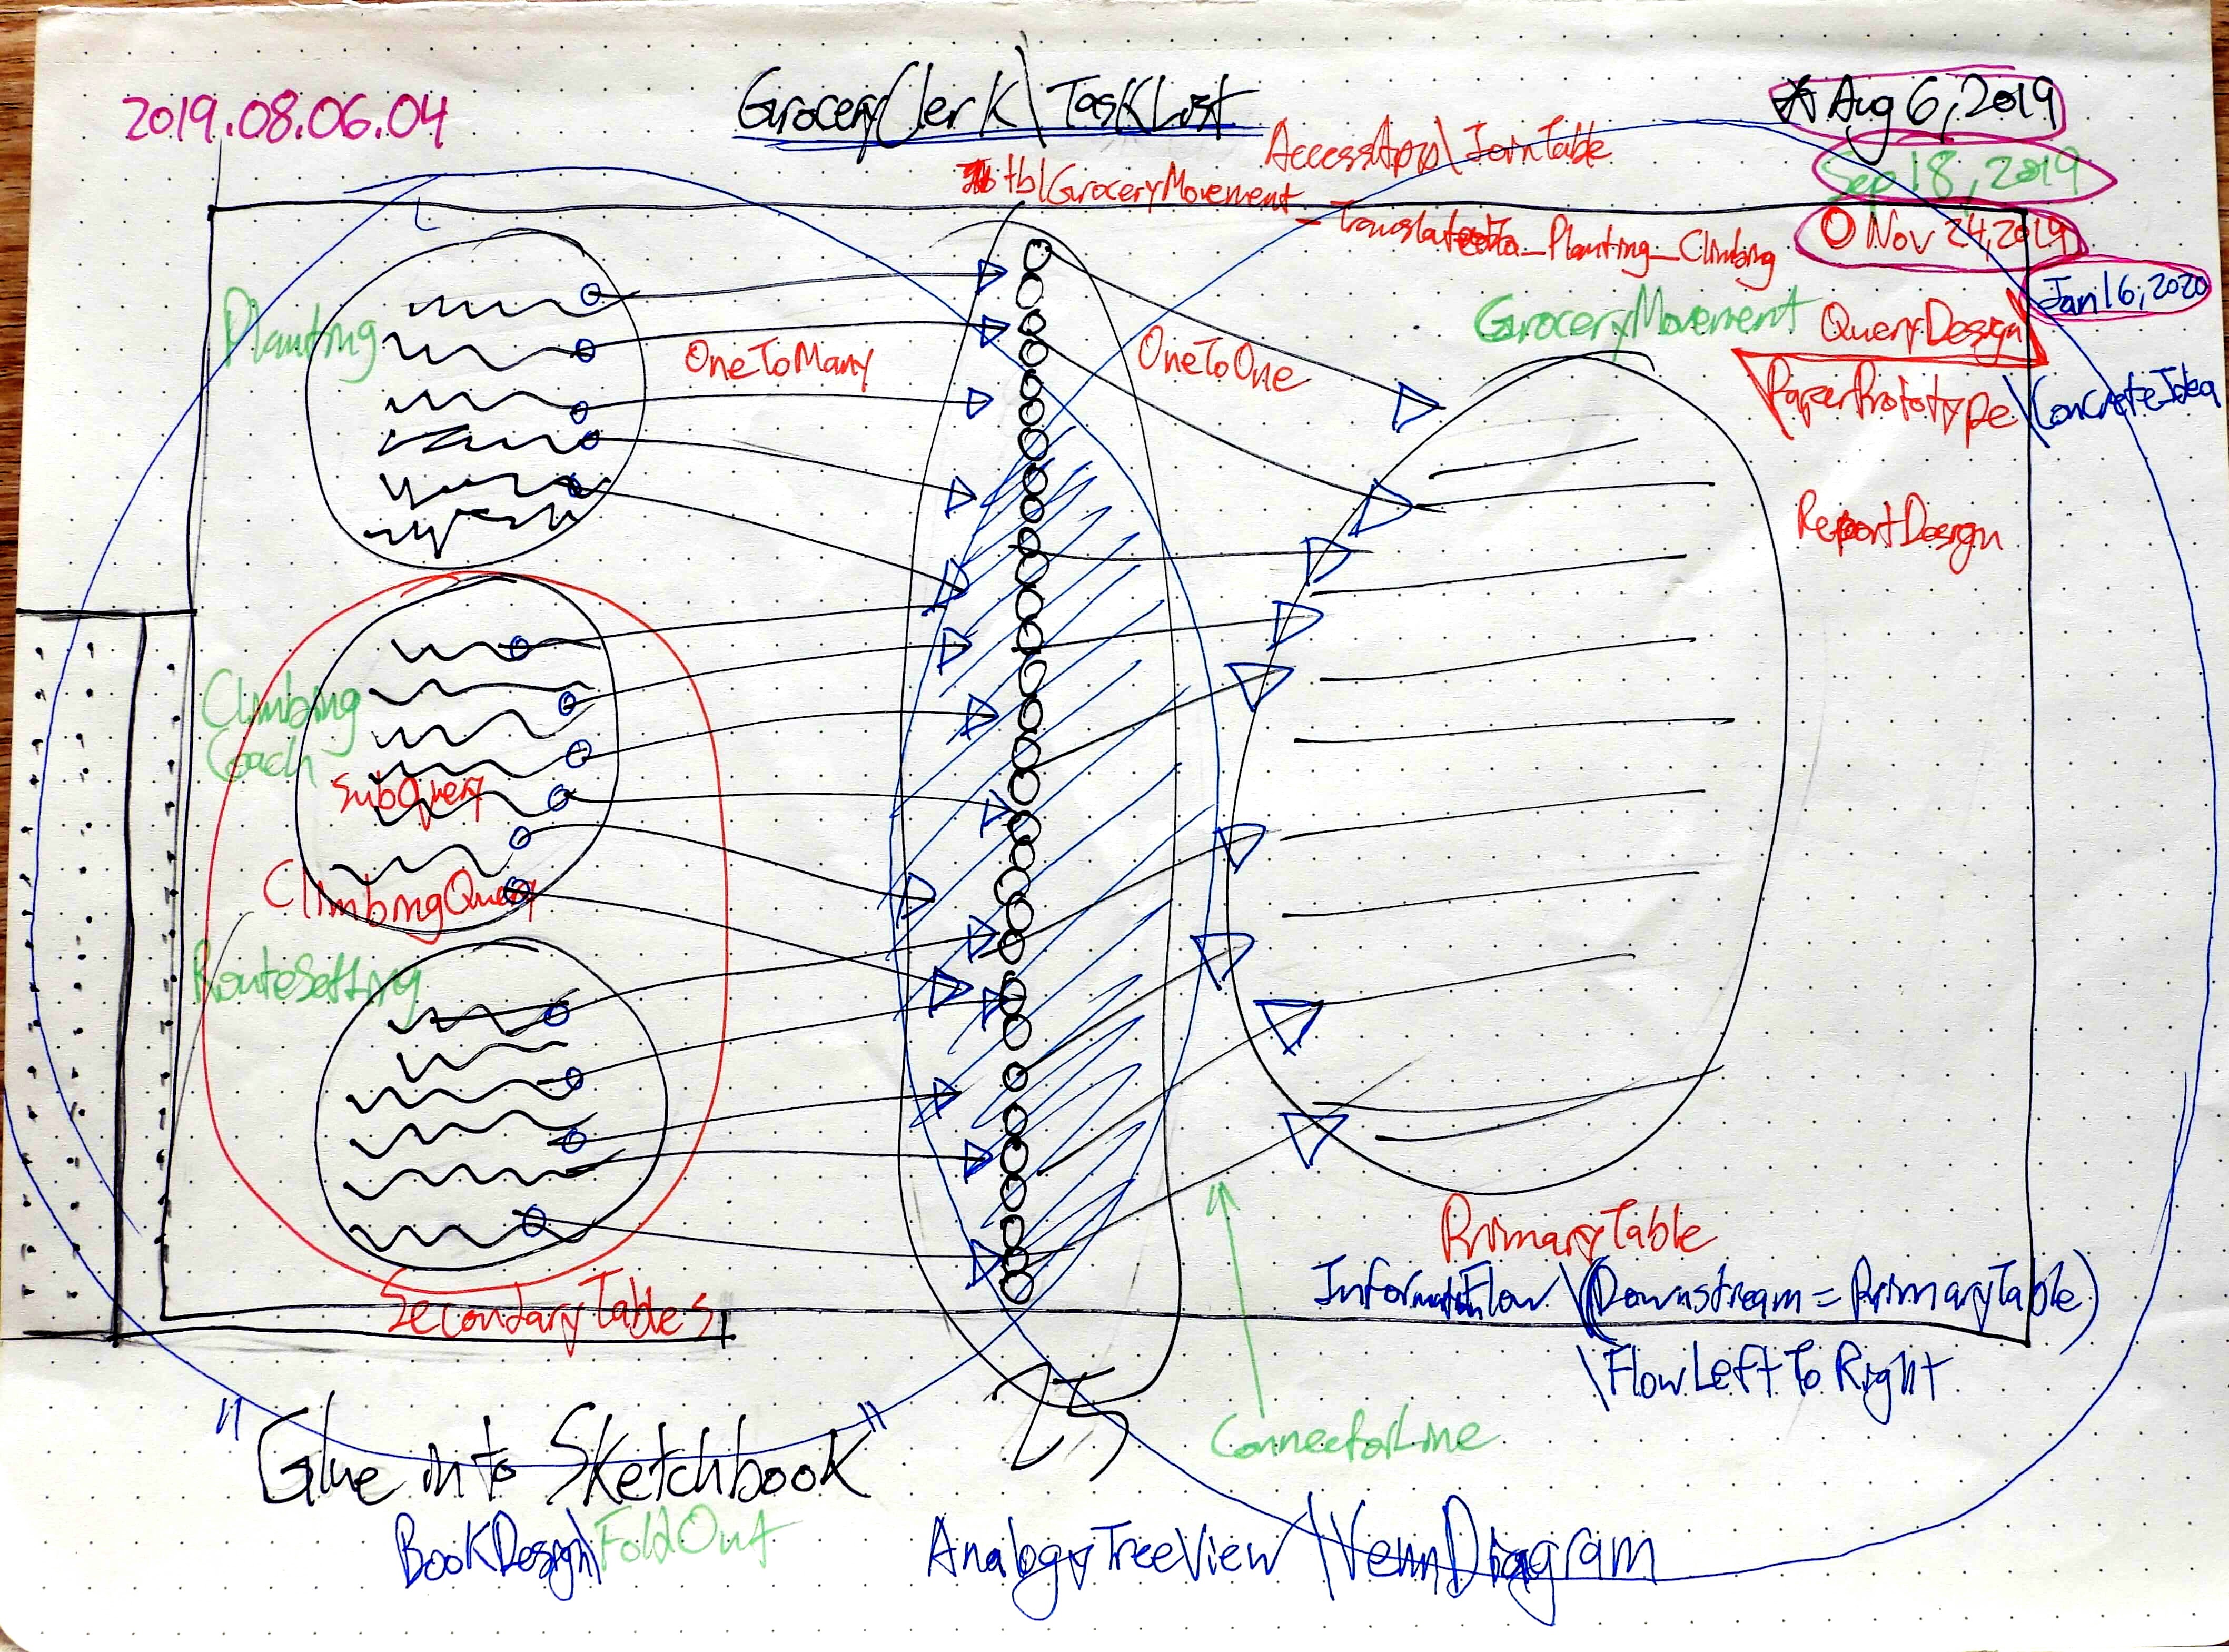 2019.08.06.04
GroceryClerk\TaskList
Aug 6, 2019
Sep 18, 2019
Nov 24, 2019
Jan 16, 2020
AccessApp\JoinTable
tblGroceryMovement
_Planting_Climbing
GroceryMovement
QueryDesign
\PaperPrototype\ConcreteIdea
ReportDesign
Planting
OneToMany
OneToOne
Climbing
Coach
SubQuery
ClimbingQuery
RouteSetting
SecondaryTables
PrimaryTable
InformationFlow\(Downstream = PrimaryTable)
\FlowLeftToRight
ConnectorLine
"Glue into Sketchbook"
BookDesign\FoldOut
AnalogyTreeView\VennDiagram